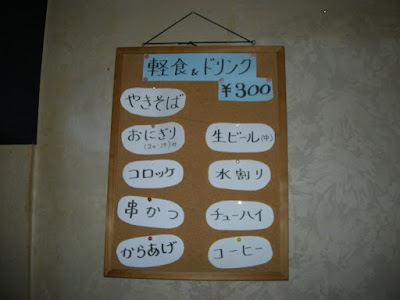 軽食&ドリンク
¥300
やきそば
おにぎり
コロッケ
串かつ
からあげ
生ビール(中)
水割り
チューハイ
コーヒー